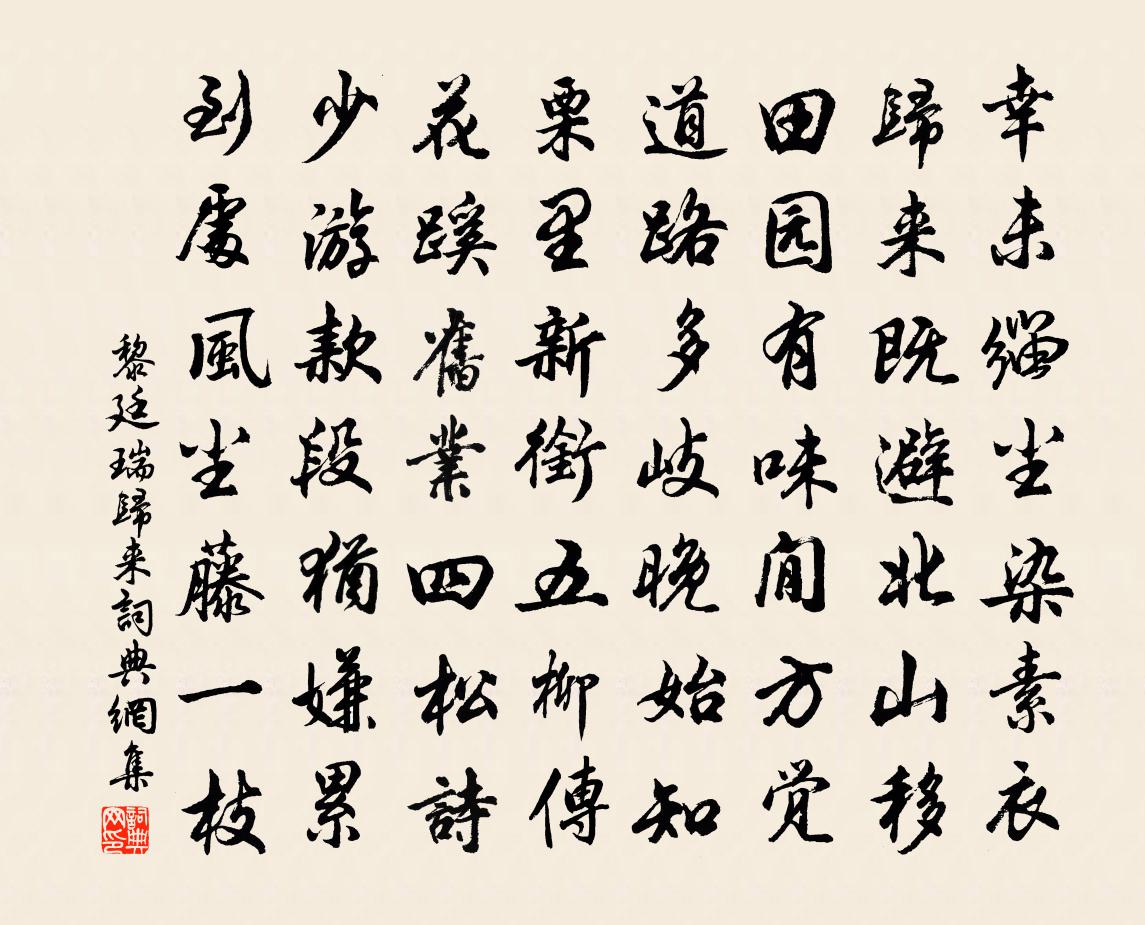 幸未缁尘染素衣
歸来既避北山移
田园有味閒方觉
道路多岐晚始知
栗里新銜五柳傳
花蹊舊業四松詩
少游款段猶嫌累
到處風尘藤一枝
黎廷瑞歸来詞典網集
詞典网印